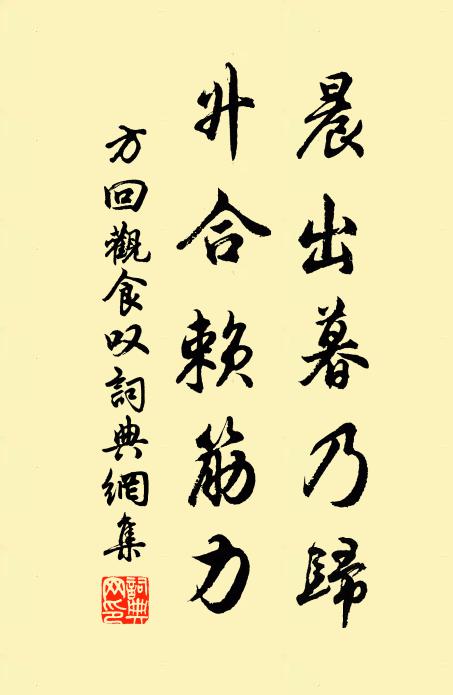 晨出暮乃歸
升合賴筋力
方回觀食叹詞典網集
詞典網印